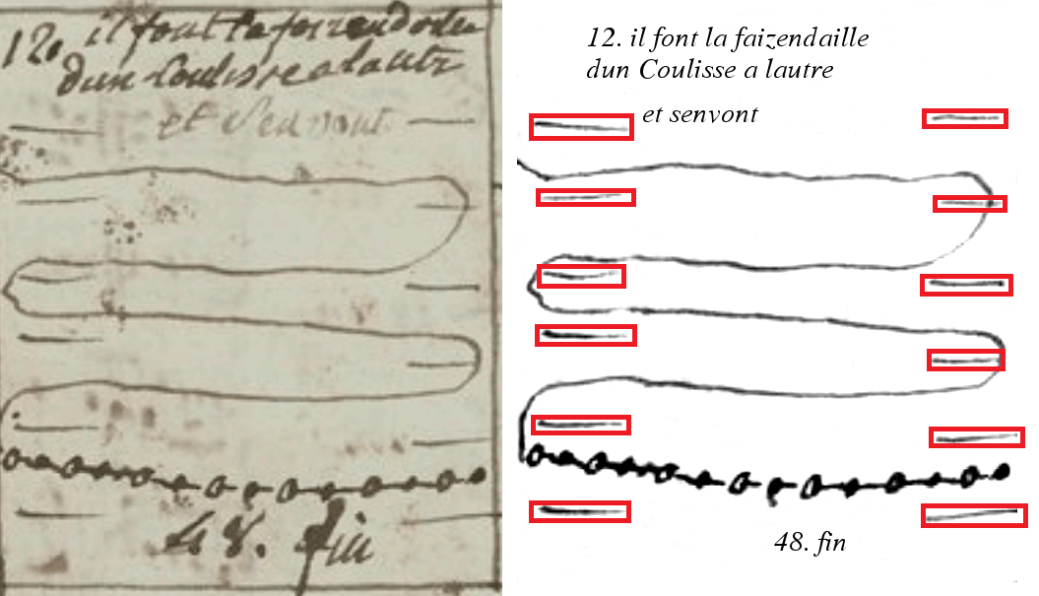 12. il font la faizendaille
dun Coulisse a lautre
et s'en vont
48. fin
12. il font la faizendaille
dun Coulisse a lautre
et senvont
48. fin